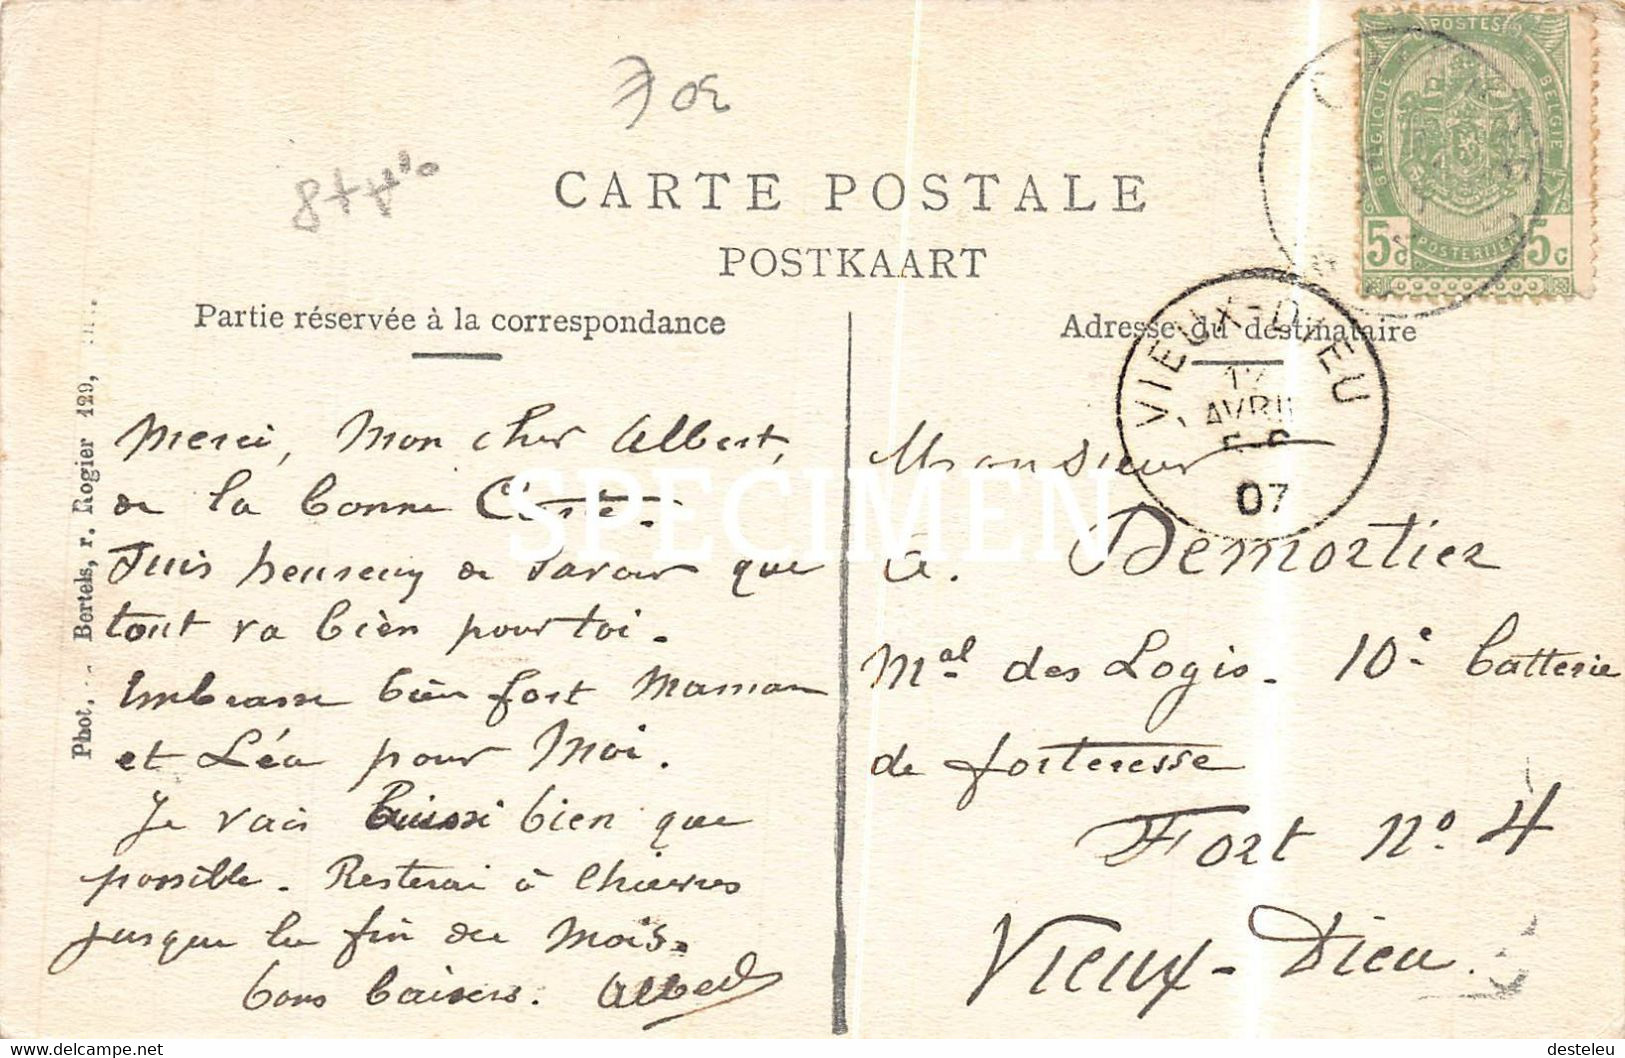 30E
CARTE POSTALE
POSTKAART
Partie réservée à la correspondance
Adresse du destinataire
POSTES
BELGIQUE
BELGIE
5c
POSTERIJEN
5c
VIEUX-DIEU
AVRIL
07
Phot. Bertels, r. Rogier 129,
SPECIMEN
Merci, Mon cher Albert,
de la bonne Carte.
Suis heureux de savoir que
tout va bien pour toi.
Embrasse bien fort Maman
et Léa pour Moi.
Je vais aussi bien que
possible. Resterai à Chièvres
jusque la fin du Mois.
bons baisers. Albert
Monsieur
A. Demortier
Mal des Logis. 10e batterie
de forteresse
Fort No. 4
Vieux-Dieu.
https://www.delcampe.net
desteleu